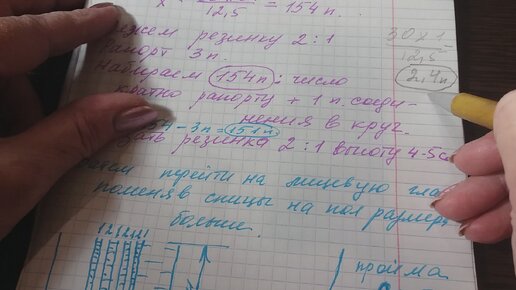 12,5 = 154 п.
резинку 2:1
Рапорт 3 п.
Набираем 154п: число
кратно рапорту + 1 п. соеди-
нения в круг.
- 3п = 151п
резинка 2:1 высоту 4-5с
перейти на лицевую гла
поменяв спицы на пол размера
больше.
30 х 1
12,5
2,4п
пройма